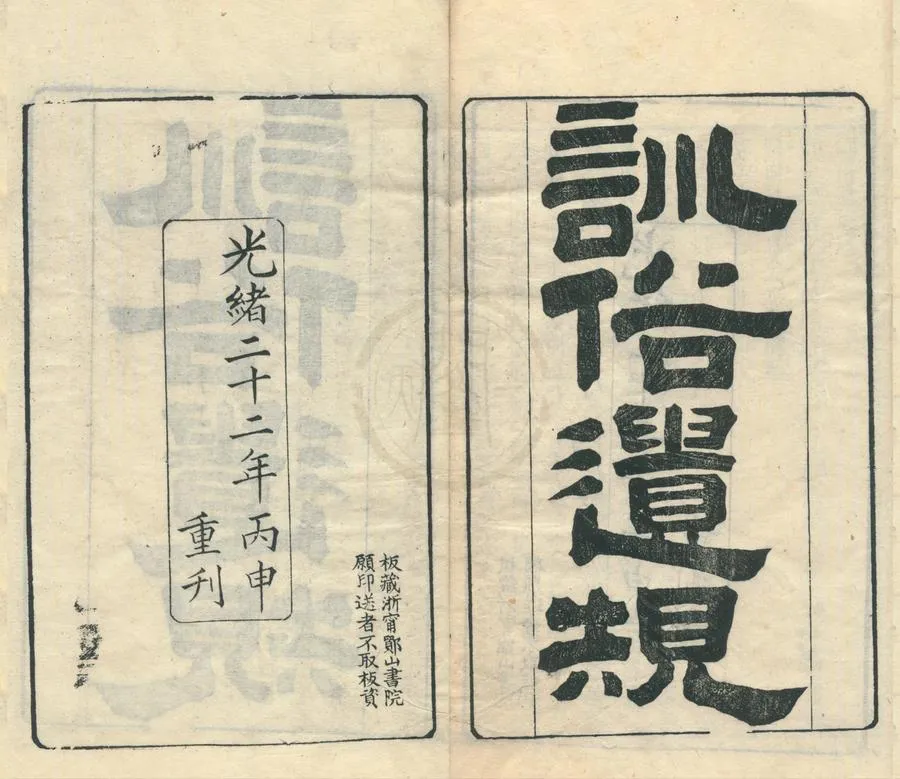 訓俗遺規
板藏浙甯鄮山書院
願印送者不取板資
光緒二十二年丙申
重刊